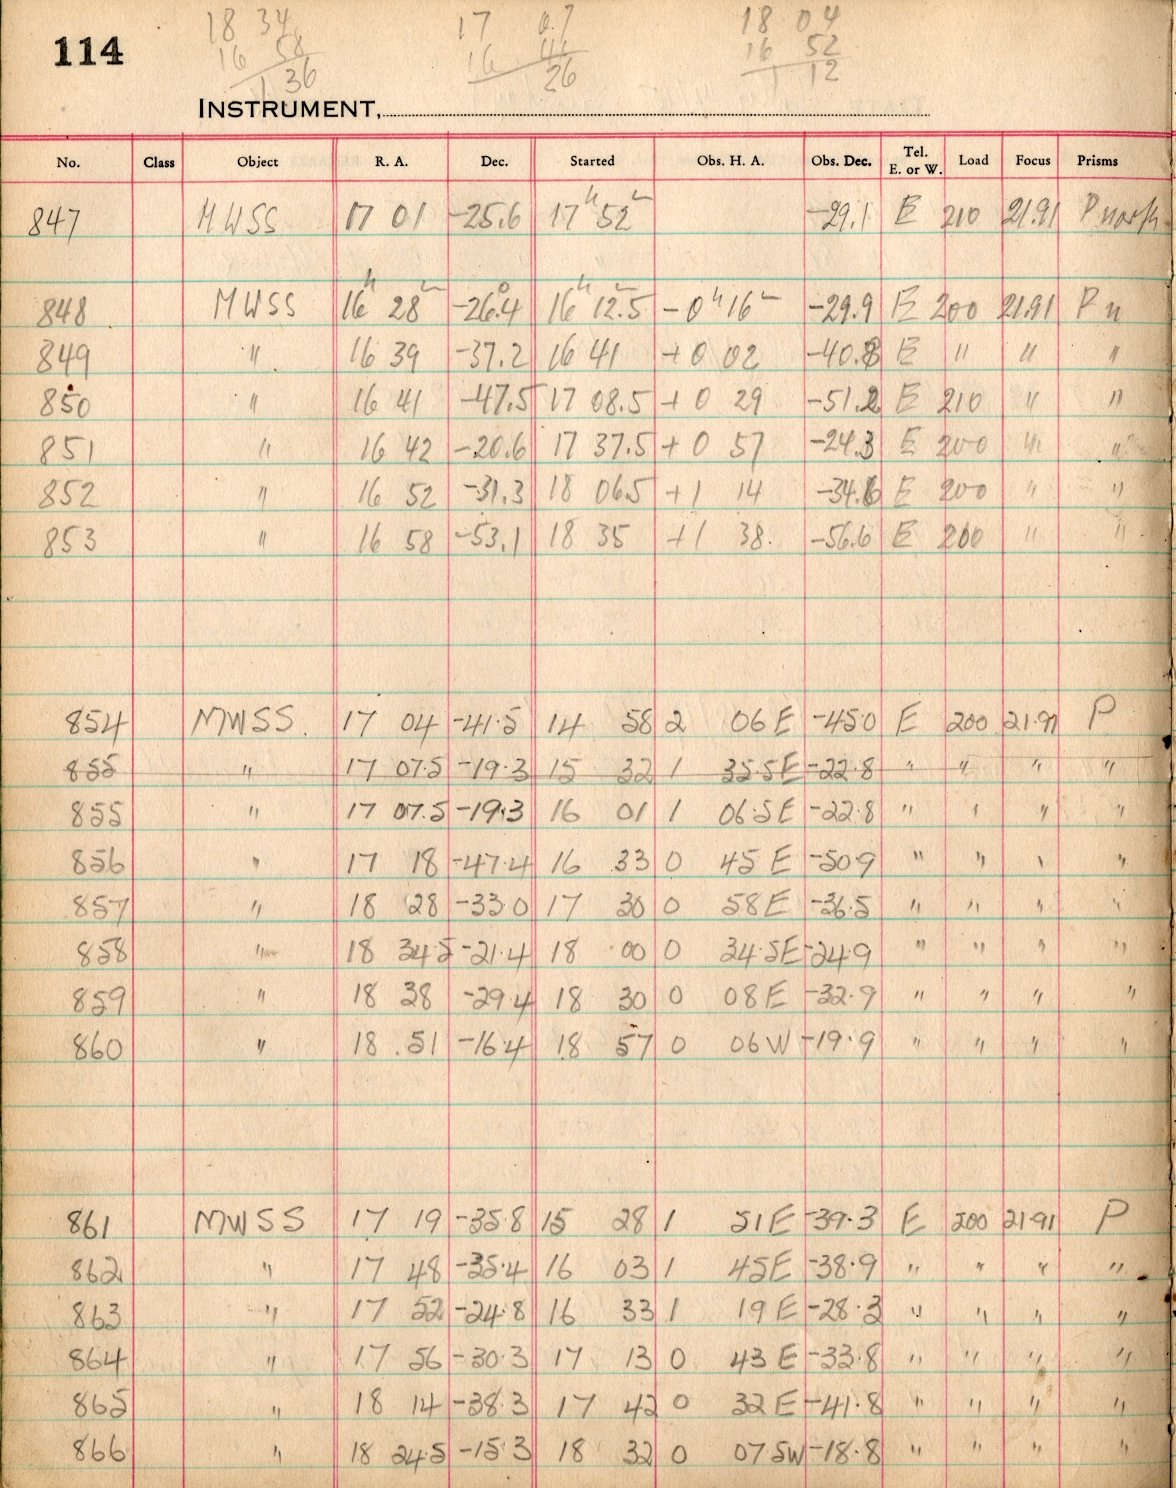 18 34 17 07 18 04
16 58 16 41 16 52
1 36 26 1 12
114
INSTRUMENT,
No. Class Object R. A. Dec. Started Obs. H. A. Obs. Dec. Tel. E. or W. Load Focus Prisms
847 MWSS 17 01 -25.6 17h 52m -29.1 E 210 21.91 P north
848 MWSS 16h 28m -26°.4 16h 12m.5 -0h 16m -29.9 E 200 21.91 P n
849 " 16 39 -37.2 16 41 +0 02 -40.8 E " " "
850 " 16 41 -47.5 17 08.5 +0 29 -51.2 E 210 " "
851 " 16 42 -20.6 17 37.5 +0 57 -24.3 E 200 " "
852 " 16 52 -31.3 18 06.5 +1 14 -34.6 E 200 " "
853 " 16 58 -53.1 18 35 +1 38. -56.6 E 200 " "
854 MWSS. 17 04 -41.5 14 58 2 06 E -45.0 E 200 21.91 P
855 " 17 07.5 -19.3 15 32 1 35.5 E -22.8 " " " "
855 " 17 07.5 -19.3 16 01 1 06.5 E -22.8 " " " "
856 " 17 18 -47.4 16 33 0 45 E -50.9 " " " "
857 " 18 28 -33.0 17 30 0 58 E -36.5 " " " "
858 " 18 34.5 -21.4 18 00 0 34.5 E -24.9 " " " "
859 " 18 38 -29.4 18 30 0 08 E -32.9 " " " "
860 " 18 51 -16.4 18 57 0 06 W -19.9 " " " "
861 MWSS 17 19 -35.8 15 28 1 51 E -39.3 E 200 21.91 P
862 " 17 48 -35.4 16 03 1 45 E -38.9 " " " "
863 " 17 52 -24.8 16 33 1 19 E -28.3 " " " "
864 " 17 56 -30.3 17 13 0 43 E -33.8 " " " "
865 " 18 14 -38.3 17 42 0 32 E -41.8 " " " "
866 " 18 24.5 -15.3 18 32 0 07.5 W -18.8 " " " "